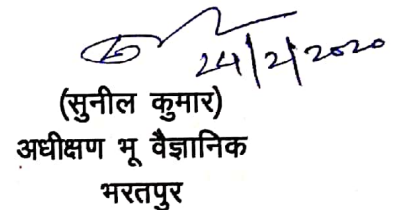 24/2/2020
(सुनील कुमार)
अधीक्षण भू वैज्ञानिक
भरतपुर